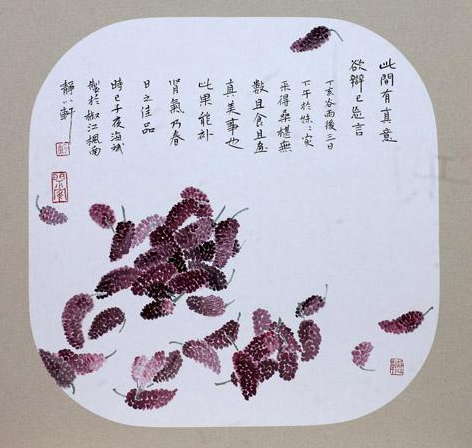 此間有真意
欲辯已忘言
丁亥谷雨後三日
下午於妹〻家
采得桑椹無
數且食且畫
真美事也
此果能补
腎氣乃春
日之佳品
時已子夜海
製於椒江楓南
靜心軒